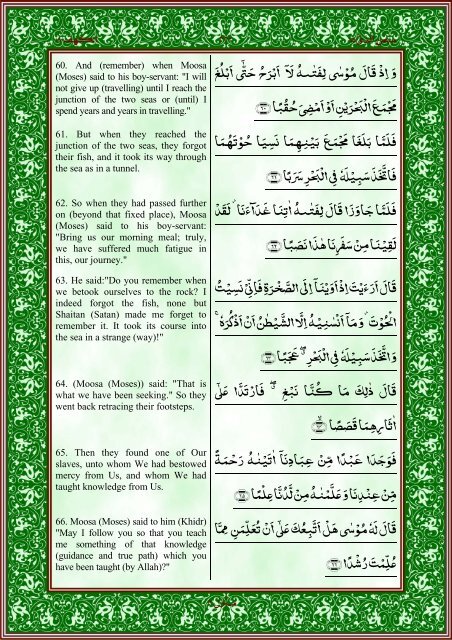 60. And (remember) when Moosa
(Moses) said to his boy-servant: "I will
not give up (travelling) until I reach the
junction of the two seas or (until) I
spend years and years in travelling."
وَ اِذْ قَالَ مُوْسٰى لِفَتٰىهُ لَاۤ اَبْرَحُ حَتّٰۤى اَبْلُغَ
مَجْمَعَ الْبَحْرَيْنِ اَوْ اَمْضِيَ حُقُبًا ۝٦٠
61. But when they reached the
junction of the two seas, they forgot
their fish, and it took its way through
the sea as in a tunnel.
فَلَمَّا بَلَغَا مَجْمَعَ بَيْنِهِمَا نَسِيَا حُوْتَهُمَا
فَاتَّخَذَ سَبِيْلَهٗ فِي الْبَحْرِ سَرَبًا ۝٦١
62. So when they had passed further
on (beyond that fixed place), Moosa
(Moses) said to his boy-servant:
"Bring us our morning meal; truly,
we have suffered much fatigue in
this, our journey."
فَلَمَّا جَاوَزَا قَالَ لِفَتٰىهُ اٰتِنَا غَدَآءَنَا ۫ لَقَدْ
لَقِيْنَا مِنْ سَفَرِنَا هٰذَا نَصَبًا ۝٦٢
63. He said:"Do you remember when
we betook ourselves to the rock? I
indeed forgot the fish, none but
Shaitan (Satan) made me forget to
remember it. It took its course into
the sea in a strange (way)!"
قَالَ اَرَءَيْتَ اِذْ اَوَيْنَاۤ اِلَى الصَّخْرَةِ فَاِنِّيْ نَسِيْتُ
الْحُوْتَ ۫ وَ مَاۤ اَنْسٰىنِيْهُ اِلَّا الشَّيْطٰنُ اَنْ اَذْكُرَهٗ ۚ
وَ اتَّخَذَ سَبِيْلَهٗ فِي الْبَحْرِ ۖ عَجَبًا ۝٦٣
64. (Moosa (Moses)) said: "That is
what we have been seeking." So they
went back retracing their footsteps.
قَالَ ذٰلِكَ مَا كُنَّا نَبْغِ ۖ فَارْتَدَّا عَلٰۤى
اٰثَارِهِمَا قَصَصًا ۝٦٤
65. Then they found one of Our
slaves, unto whom We had bestowed
mercy from Us, and whom We had
taught knowledge from Us.
فَوَجَدَا عَبْدًا مِّنْ عِبَادِنَاۤ اٰتَيْنٰهُ رَحْمَةً
مِّنْ عِنْدِنَا وَ عَلَّمْنٰهُ مِنْ لَّدُنَّا عِلْمًا ۝٦٥
66. Moosa (Moses) said to him (Khidr)
"May I follow you so that you teach
me something of that knowledge
(guidance and true path) which you
have been taught (by Allah)?"
قَالَ لَهٗ مُوْسٰى هَلْ اَتَّبِعُكَ عَلٰۤى اَنْ تُعَلِّمَنِ مِمَّا
عُلِّمْتَ رُشْدًا ۝٦٦